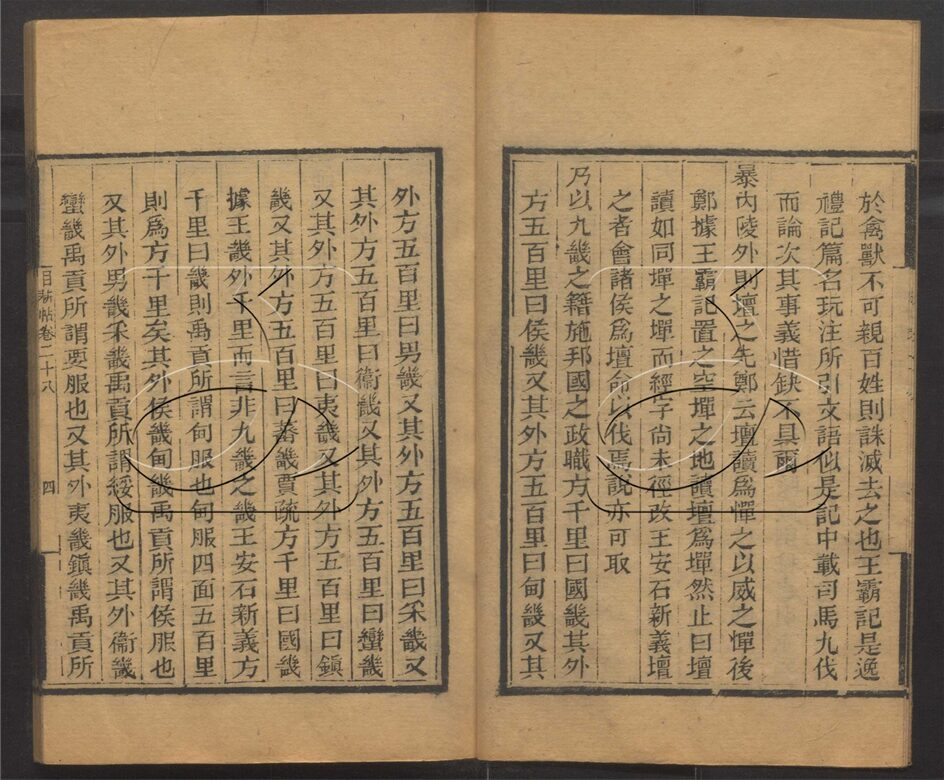 於禽獸不可親百姓則誅滅去之也王霸記是逸
禮記篇名玩注所引文語似是記中載司馬九伐
而論次其事義惜缺不具爾
暴內陵外則壇之先鄭云壇讀爲憚之以威之憚後
鄭據王霸記置之空墠之地讀壇爲墠然止曰壇
讀如同墠之墠而經字尚未徑改王安石新義壇
之者會諸侯爲壇命以伐焉說亦可取
乃以九畿之籍施邦國之政職方千里曰國畿其外
方五百里曰侯畿又其外方五百里曰甸畿又其
外方五百里曰男畿又其外方五百里曰采畿又
其外方五百里曰衞畿又其外方五百里曰蠻畿
又其外方五百里曰夷畿又其外方五百里曰鎮
畿又其外方五百里曰蕃畿賈疏方千里曰國畿
據王畿外千里而言非九畿之畿王安石新義方
千里曰畿則禹貢所謂甸服也甸服四面五百里
則爲方千里矣其外侯畿甸畿禹貢所謂侯服也
又其外男畿采畿禹貢所謂綏服也又其外衞畿
蠻畿禹貢所謂要服也又其外夷畿鎮畿禹貢所
目耕帖卷二十八
四